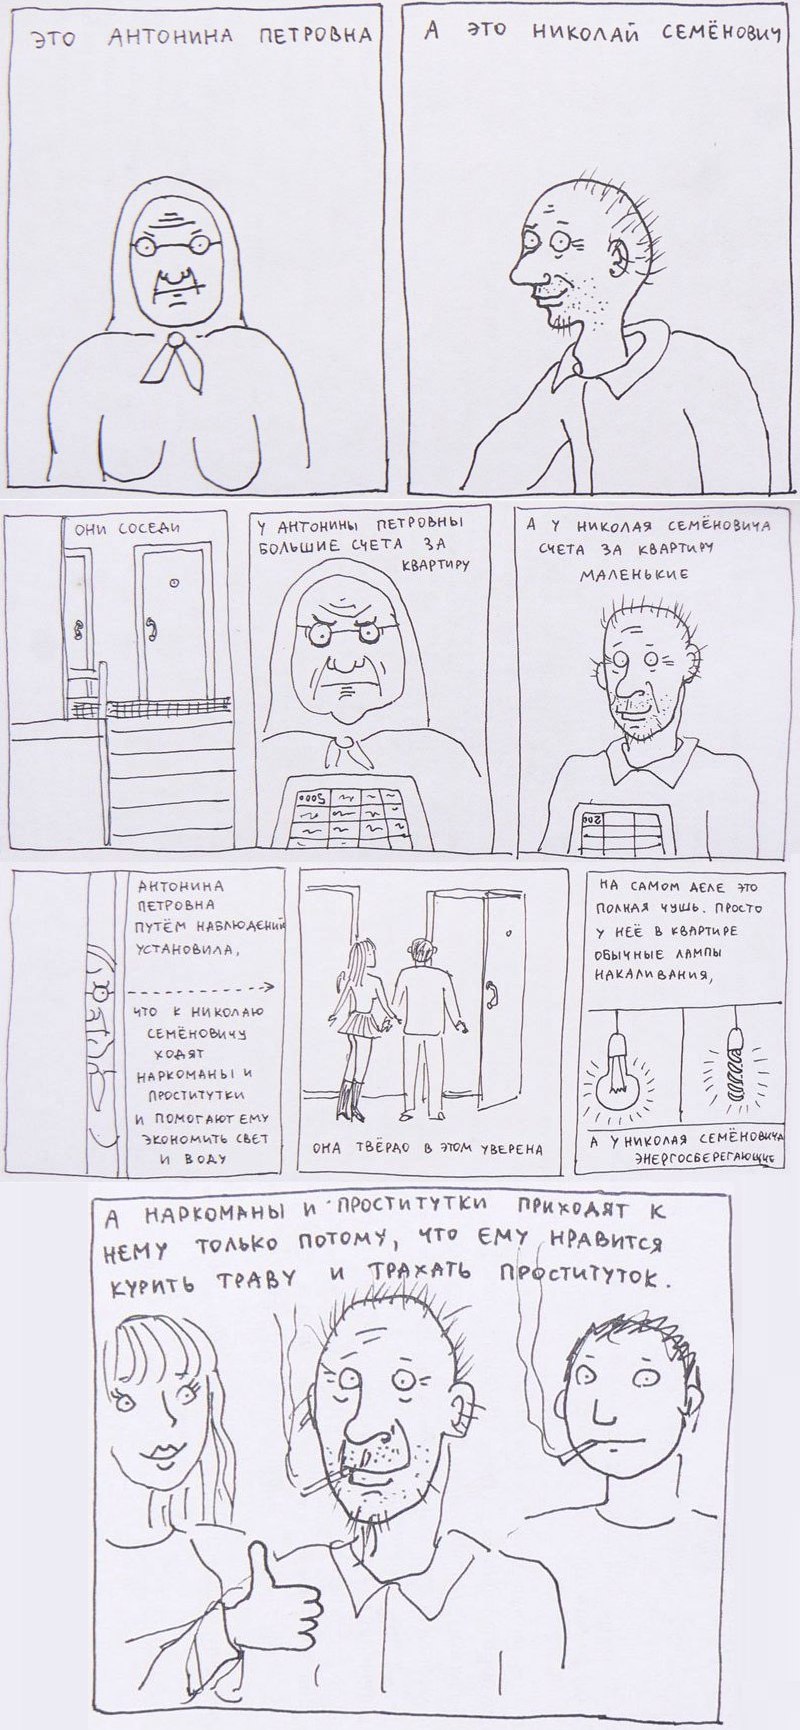 ЭТО АНТОНИНА ПЕТРОВНА
А ЭТО НИКОЛАЙ СЕМЁНОВИЧ
ОНИ СОСЕДИ
У АНТОНИНЫ ПЕТРОВНЫ
БОЛЬШИЕ СЧЕТА ЗА
КВАРТИРУ
5000
А У НИКОЛАЯ СЕМЁНОВИЧА
СЧЕТА ЗА КВАРТИРУ
МАЛЕНЬКИЕ
200
АНТОНИНА
ПЕТРОВНА
ПУТЁМ НАБЛЮДЕНИЙ
УСТАНОВИЛА,
ЧТО К НИКОЛАЮ
СЕМЁНОВИЧУ
ХОДЯТ
НАРКОМАНЫ И
ПРОСТИТУТКИ
И ПОМОГАЮТ ЕМУ
ЭКОНОМИТЬ СВЕТ
И ВОДУ
ОНА ТВЁРДО В ЭТОМ УВЕРЕНА
НА САМОМ ДЕЛЕ ЭТО
ПОЛНАЯ ЧУШЬ. ПРОСТО
У НЕЁ В КВАРТИРЕ
ОБЫЧНЫЕ ЛАМПЫ
НАКАЛИВАНИЯ,
А У НИКОЛАЯ СЕМЁНОВИЧА
ЭНЕРГОСБЕРЕГАЮЩИЕ
А НАРКОМАНЫ И ПРОСТИТУТКИ ПРИХОДЯТ К
НЕМУ ТОЛЬКО ПОТОМУ, ЧТО ЕМУ НРАВИТСЯ
КУРИТЬ ТРАВУ И ТРАХАТЬ ПРОСТИТУТОК.